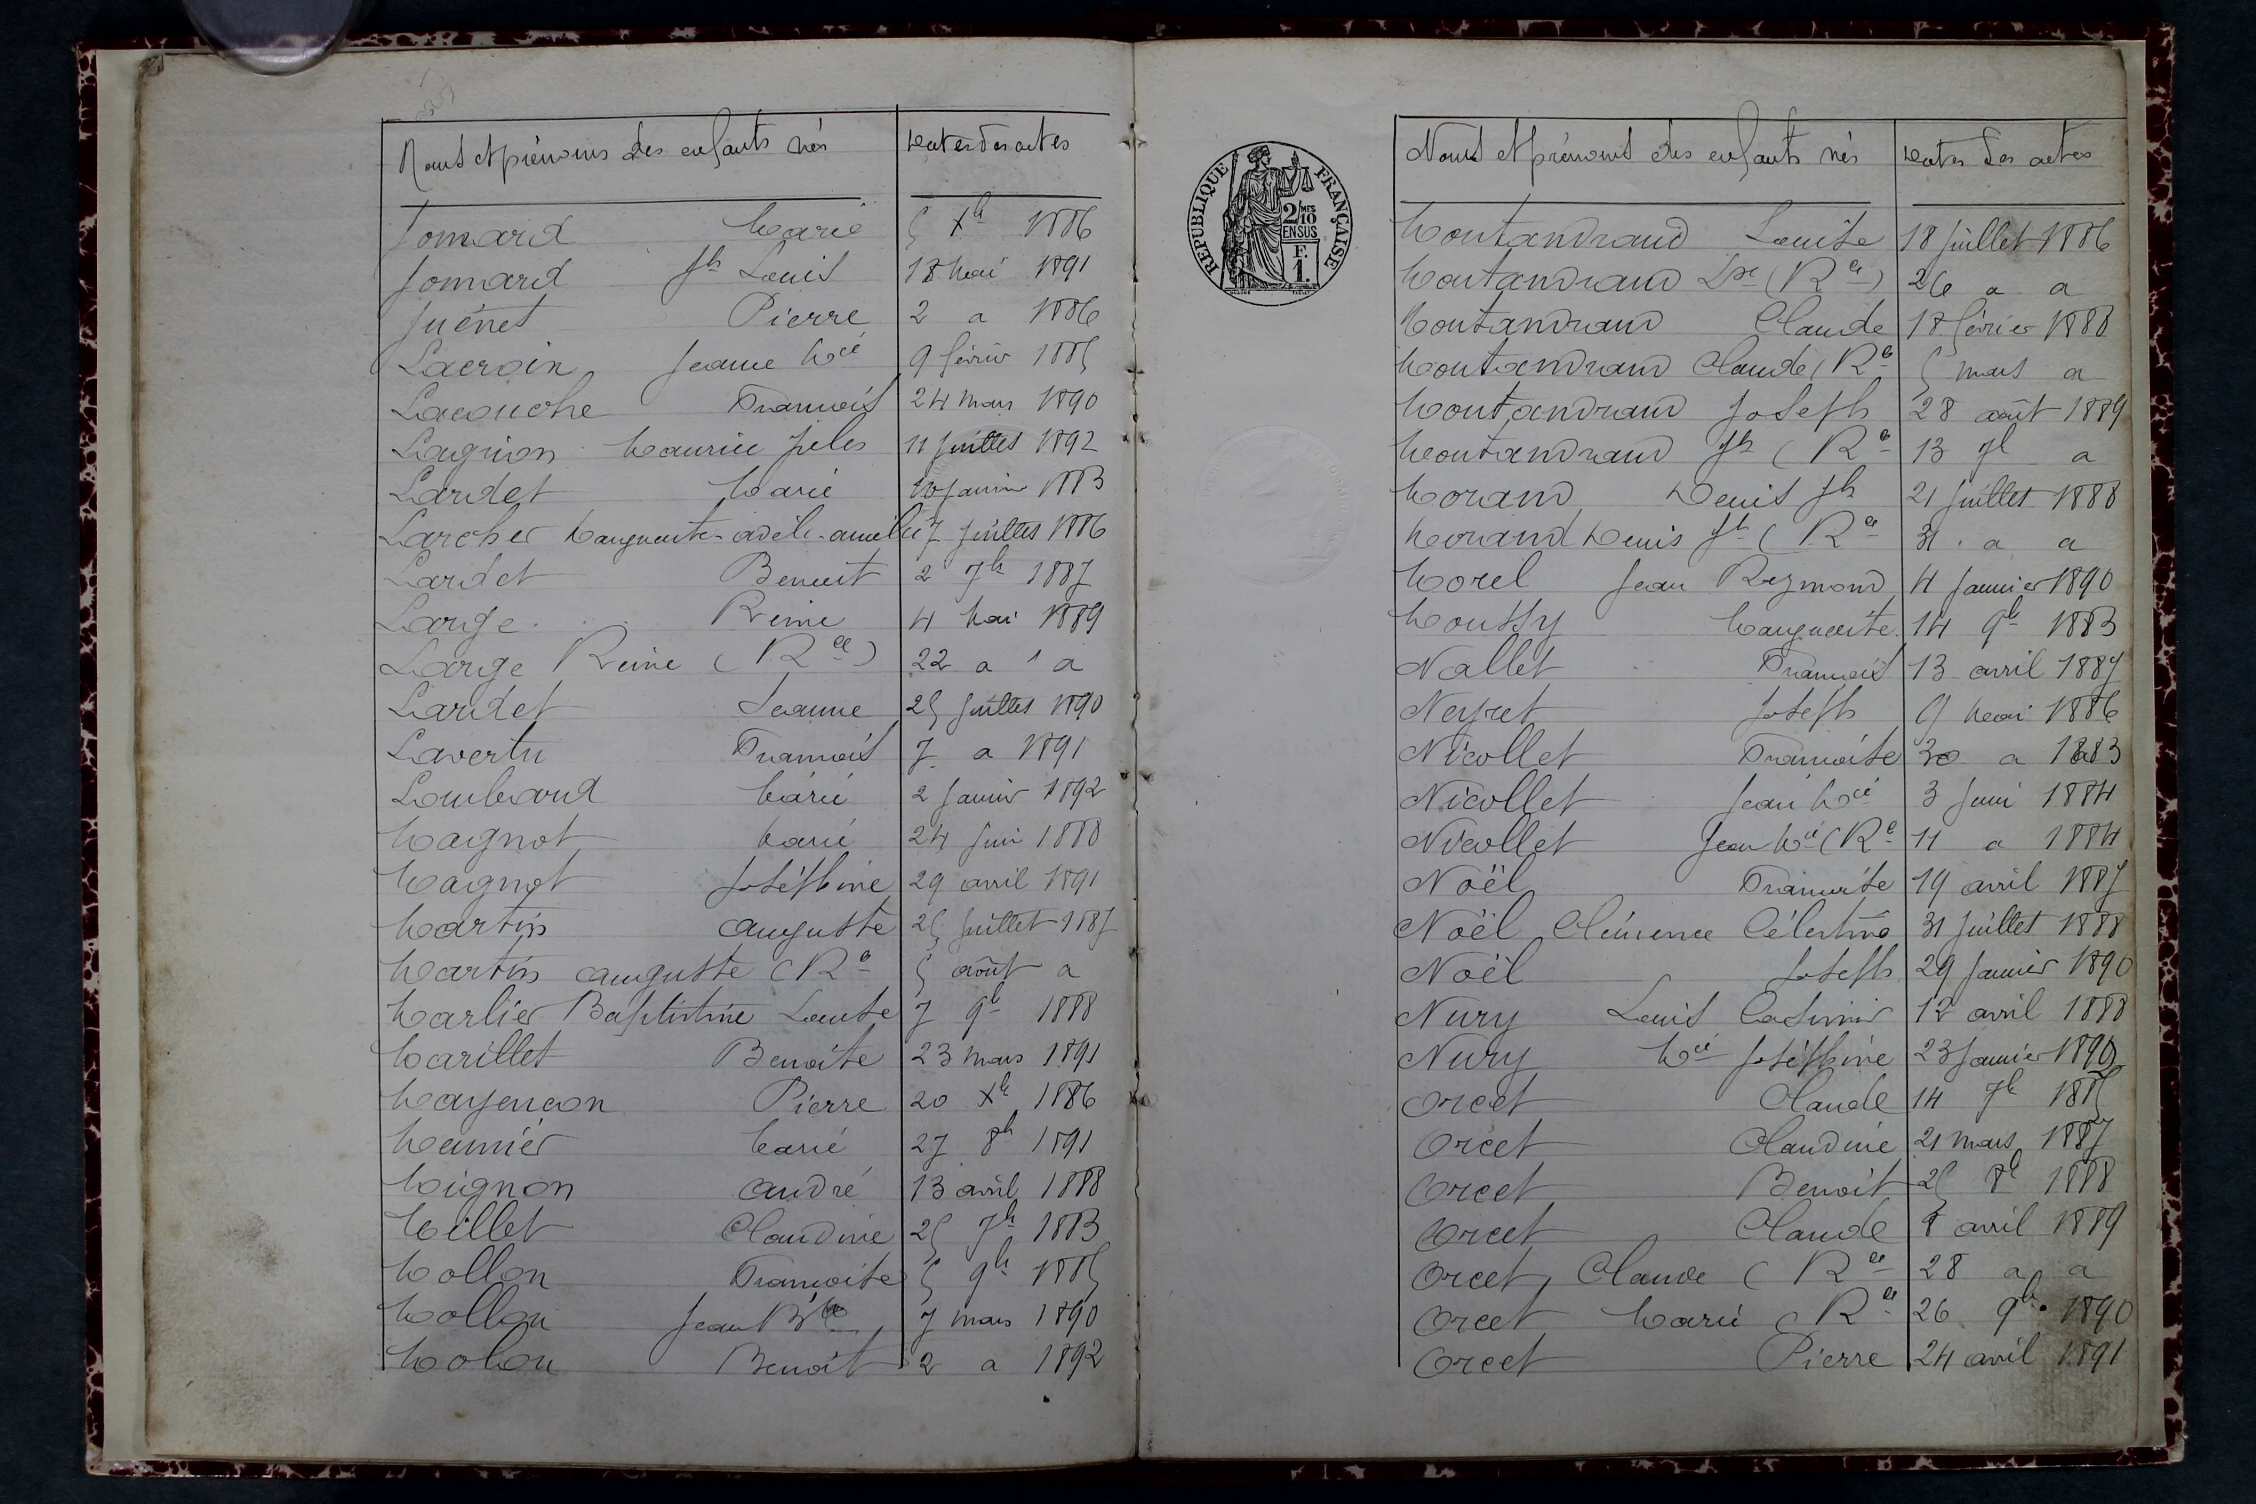 Noms et prénoms des enfants nés Dates des actes
Jomard Marie 5 Xb 1886
Jomard Jh Louis 18 Mai 1891
Juénet Pierre 2 a 1886
Lacroix Jeanne Mie 9 février 1885
Lacouche François 24 mars 1890
Lagnion Maurice Jules 11 Juillet 1892
Lardet Marie Janvier 1883
Larcher Marguerite adèle amélie 7 Juillet 1886
Lardet Benoit 2 7b 1887
Large Reine 4 Mai 1889
Large Reine (Rce) 22 a a
Lardet Jeanne 25 Juillet 1890
Lavertu François 7 a 1891
Lombard Marie 2 Janvier 1892
Magnot Marie 24 Juin 1888
Magnot Joséphine 29 avril 1891
Martin auguste 25 Juillet 1887
Martin auguste (Re 5 août a
Marlier Baptistine Louise 7 9b 1888
Marillet Benoite 23 mars 1891
Mayençon Pierre 20 Xb 1886
Meunier Marie 27 8b 1891
Mignon andré 13 avril 1888
Millet Claudine 25 7b 1883
Mollon Françoise 5 9b 1885
Mollon Jean Bte 7 mars 1890
Molon Benoit 2 a 1892
REPUBLIQUE FRANÇAISE
2/10 MES
EN SUS
F.
1.
Noms et prénoms des enfants nés Dates des actes
Montandraud Louise 18 Juillet 1886
Montandraud Lse (Rce) 26 a a
Montandraud Claude 18 février 1888
Montandraud Claude (Re 5 mars a
Montandraud Joseph 28 août 1889
Montandraud Jh (Re 13 7b a
Morand Denis Jh 21 Juillet 1888
Morand Denis Jh (Rce 31 a a
Morel Jean Reymond 4 Janvier 1890
Moussy Marguerite 14 9b 1883
Nallet François 13 avril 1887
Neyret Joseph 9 Mai 1886
Nicollet Françoise 30 a 1883
Nicollet Jean Mie 3 Juin 1884
Nicollet Jean Mie (Re 11 a 1884
Noël Françoise 19 avril 1887
Noël Clémence Célestine 31 Juillet 1888
Noël Joseph 29 Janvier 1890
Nury Louis Casimir 12 avril 1888
Nury Mie Joséphine 23 Janvier 1890
Orcet Claude 14 7b 1885
Orcet Claudine 21 mars 1887
Orcet Benoit 25 8b 1888
Orcet Claude 8 avril 1889
Orcet Claude (Rce 28 a a
Orcet Marie (Rce 26 9b 1890
Orcet Pierre 24 avril 1891